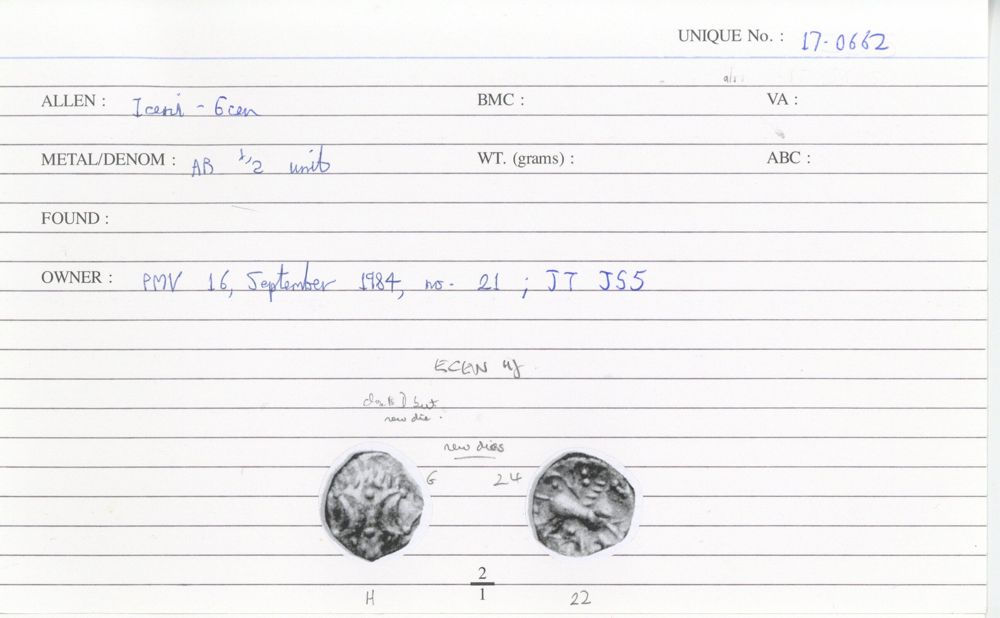 UNIQUE No. : 17-0662
ALLEN : Iceni - Ecen BMC : VA :
METAL/DENOM : AR 1/2 unit WT. (grams) : ABC :
FOUND :
OWNER : PMV 16, September 1984, no. 21 ; JT JS5
ECEN
but
new die.
new dies
G 24
2
1
H 22